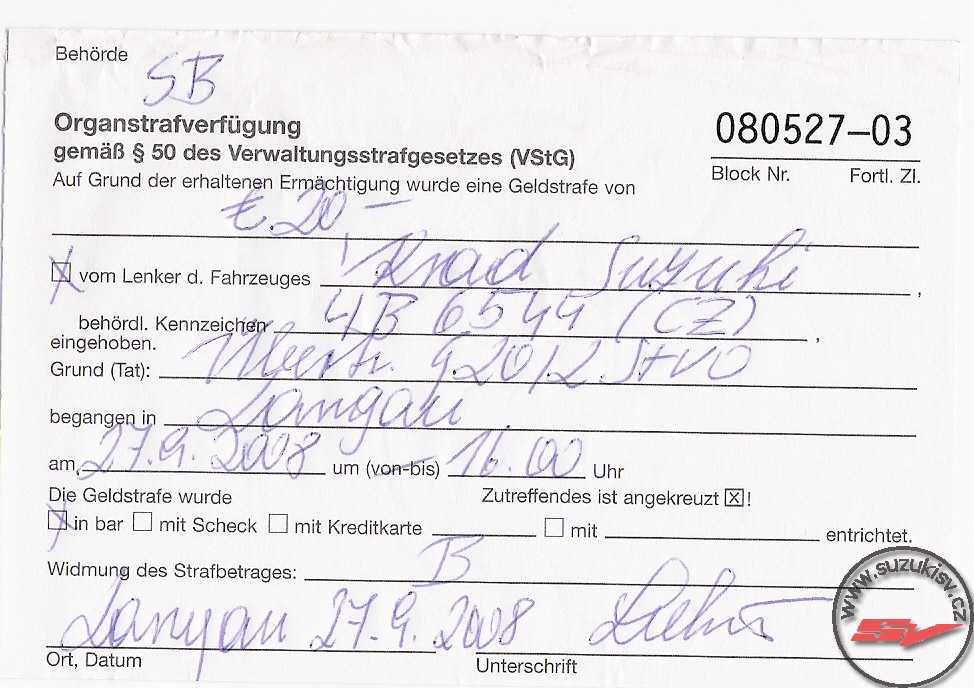 Behörde
SB
Organstrafverfügung
gemäß § 50 des Verwaltungsstrafgesetzes (VStG)
080527–03
Block Nr. Fortl. Zl.
Auf Grund der erhaltenen Ermächtigung wurde eine Geldstrafe von
€ 20 –
☒ vom Lenker d. Fahrzeuges Krad Suzuki ,
behördl. Kennzeichen 4B 6544 (CZ) ,
eingehoben.
Grund (Tat): § 20/2 StVO
begangen in Langau
am 27.9.2008 um (von–bis) 16.00 Uhr
Die Geldstrafe wurde Zutreffendes ist angekreuzt ☒!
☒ in bar ☐ mit Scheck ☐ mit Kreditkarte ☐ mit entrichtet.
Widmung des Strafbetrages: B
Langau 27.9.2008
Ort, Datum Unterschrift
www.suzukisv.cz
SV